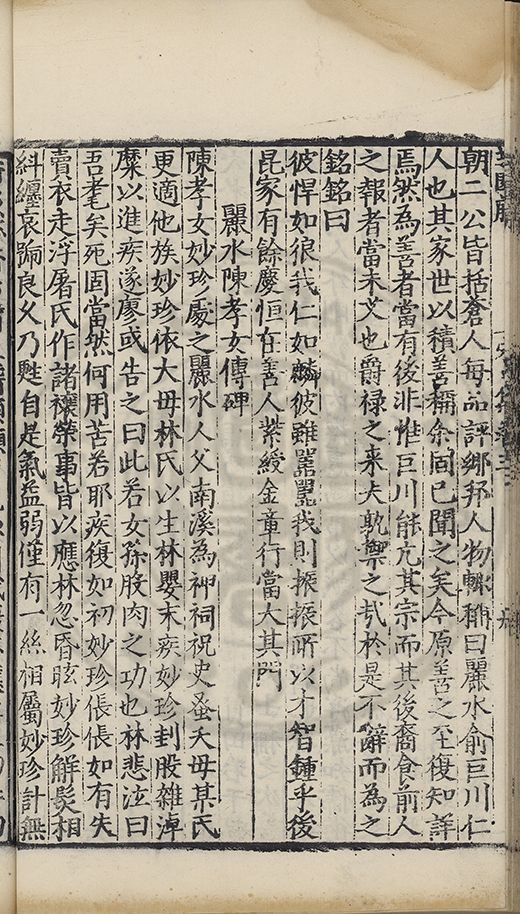 朝二公皆括蒼人每品評鄉邦人物輙稱曰麗水俞巨川仁
人也其家世以積善稱余固已聞之矣今原善之至復知詳
焉然為善者當有後非惟巨川能亢其宗而其後裔食前人
之報者當未艾也爵禄之来夫孰禦之㢤於是不辭而為之
銘銘曰
彼悍如狼我仁如麟彼雖嚚嚚我則振振所以才智鍾乎後
昆家有餘慶恒在善人紫綬金章行當大其門
麗水陳孝女傳碑
陳孝女妙珍處之麗水人父南溪為神祠祝史蚤夭母某氏
更適他族妙珍依大母林氏以生林嬰末疾妙珍刲股雜淖
糜以進疾遂廖或告之曰此若女孫股肉之功也林悲泣曰
吾耄矣死固當然何用苦若耶疾復如初妙珍倀倀如有失
賣衣走浮屠氏作諸禳禜事皆以應林忽昏眩妙珍解髮相
糾纏哀踊良久乃甦自是氣益弱僅有一絲相屬妙珍計無